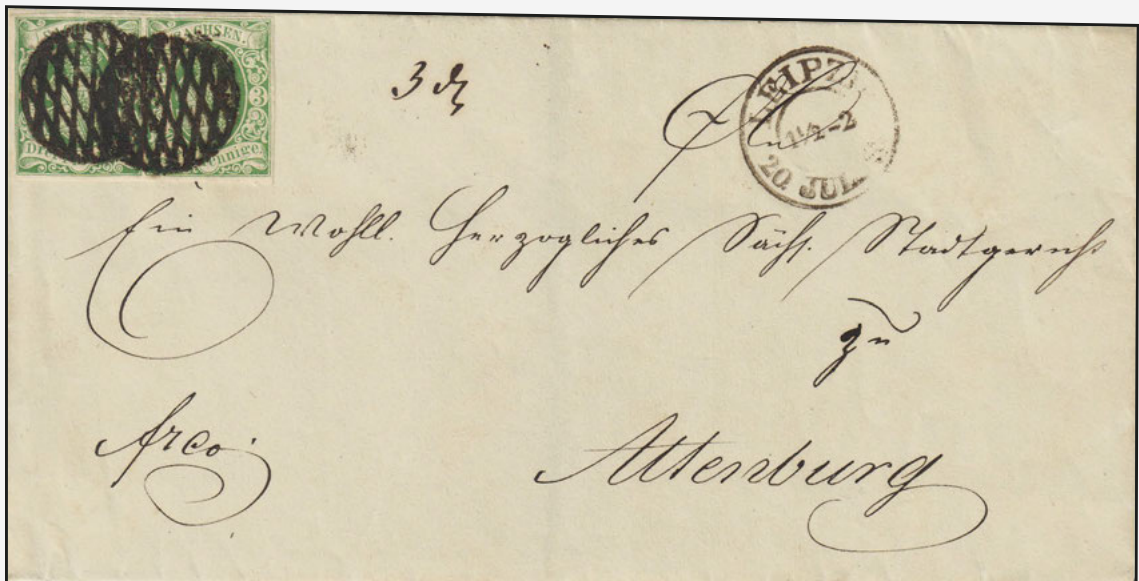 SACHSEN.
3
nnige.
3 ₰
An
LEIPZ
1½-2
20 JUL
Ein Wohll. Herzogliches Sächs. Stadtgericht
zu
Frco.
Altenburg